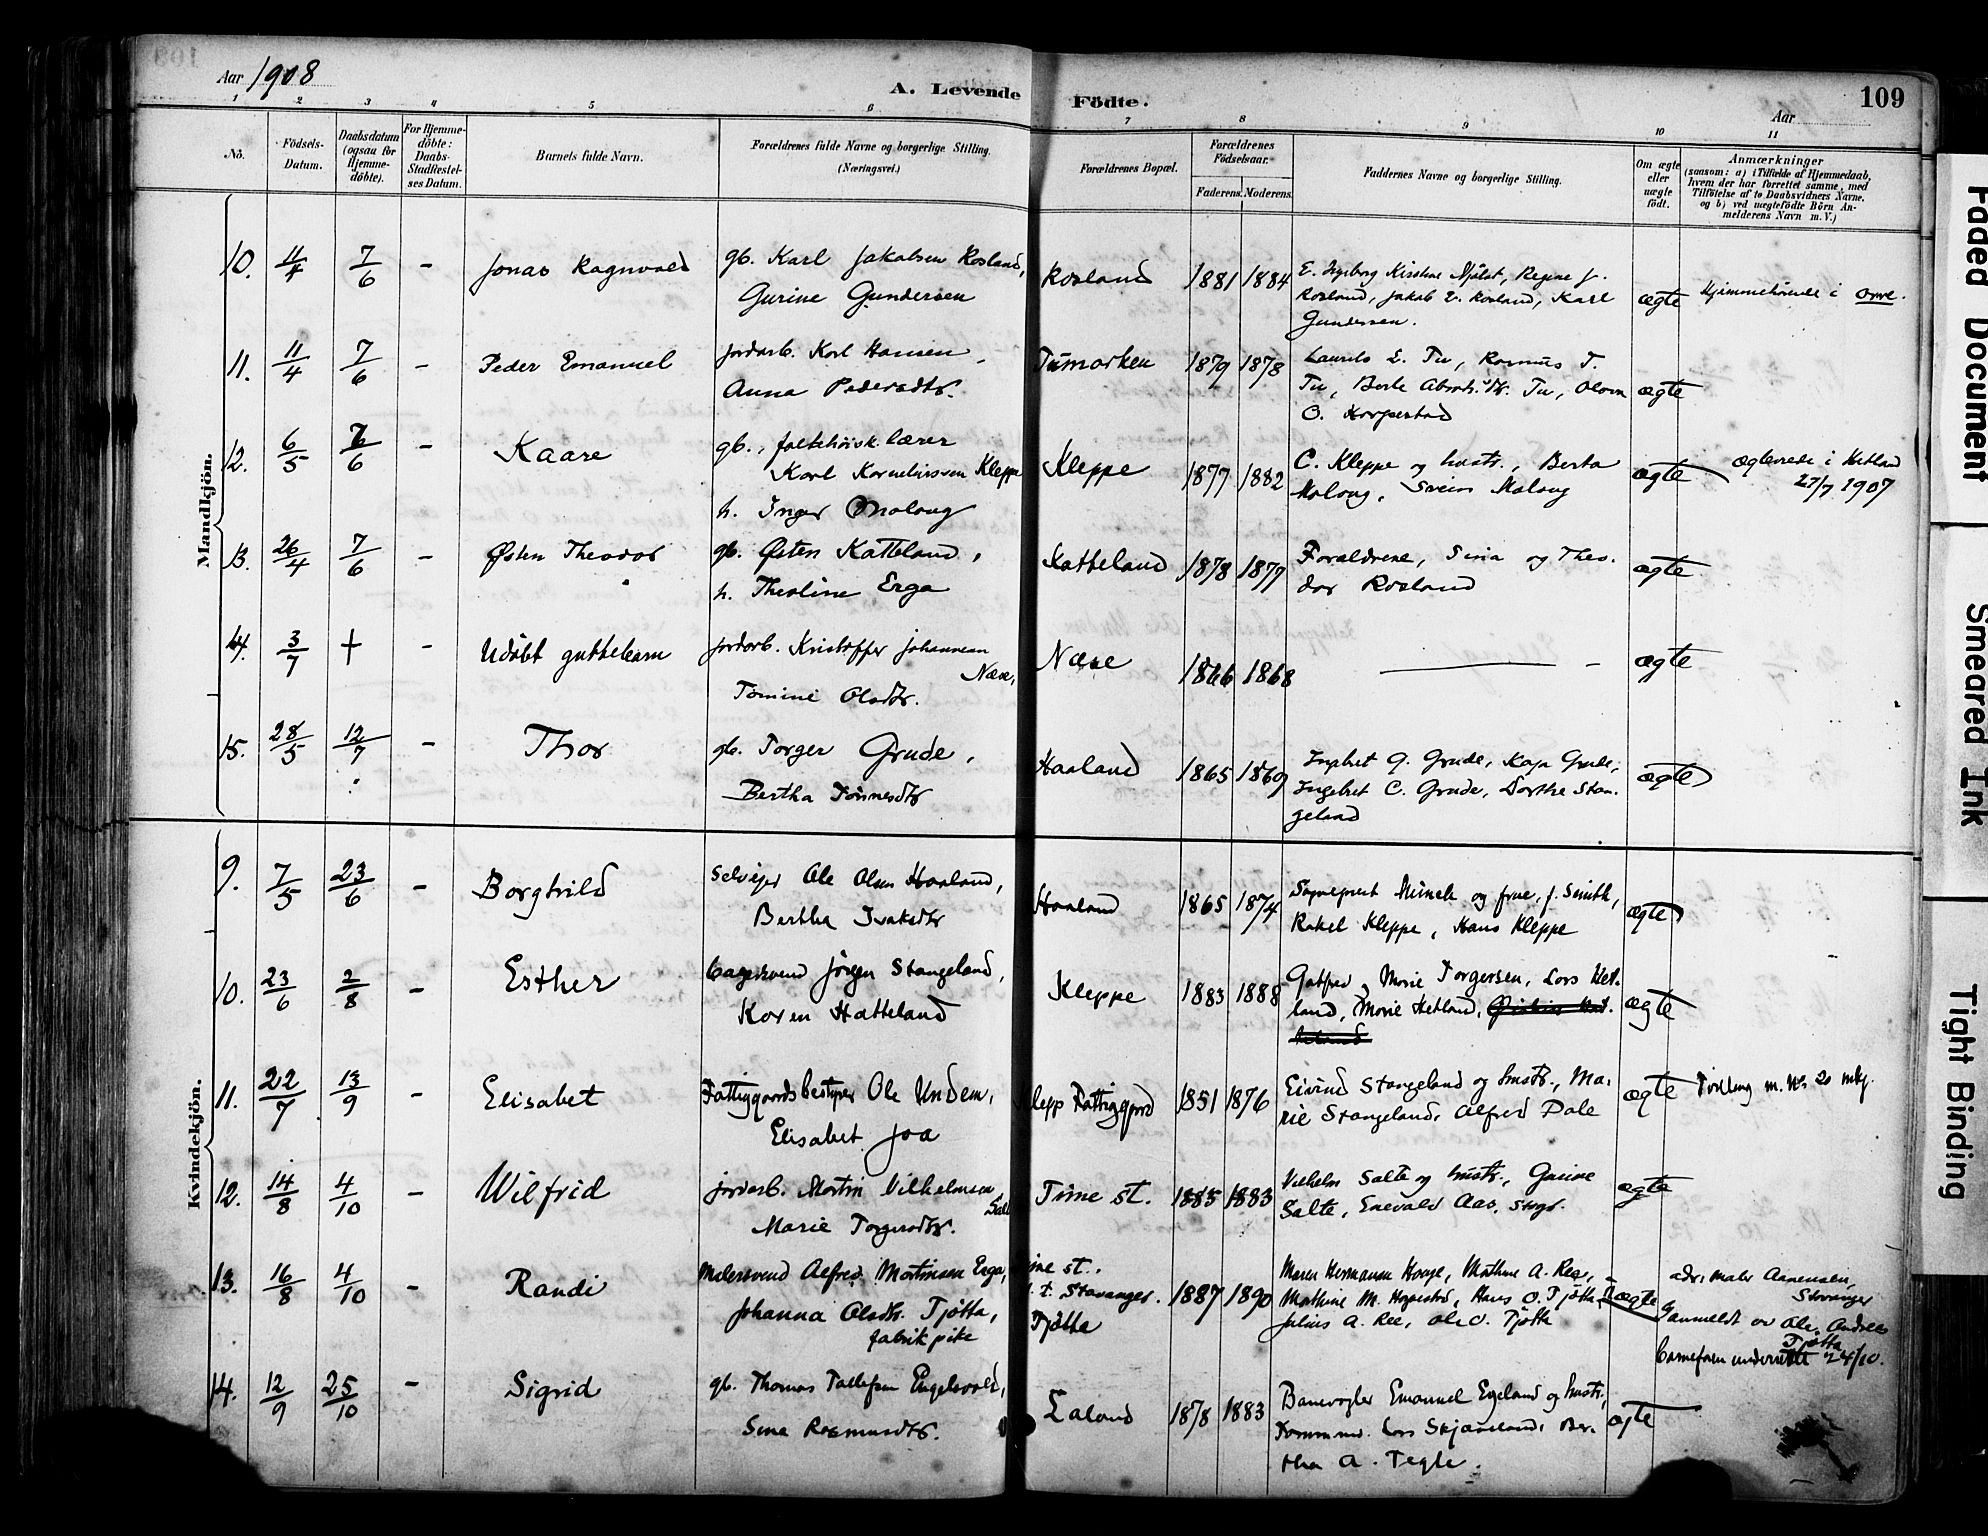 Aar 1908
A. Levende Födte.
Aar
109
1 2 3 4 5 6 7 8 9 10 11
No.
Födsels-Datum.
Daabsdatum (ogsaa for Hjemme-döbte).
For Hjemme-döbte: Daabs-Stadfæstel-ses Datum.
Barnets fulde Navn.
Forældrenes fulde Navne og borgerlige Stilling. (Næringsvei.)
Forældrenes Bopæl.
Forældrenes Födselsaar.
Faderens. Moderens.
Faddernes Navne og borgerlige Stilling.
Om ægte eller uægte født.
Anmærkninger
(saasom: a) i Tilfælde af Hjemmedaab,
hvem der har forrettet samme, med
Tilföielse af to Daabsvidners Navne.
og b) ved uægtefödte Börn An-
melderens Navn m. V.)
Mandkjön.
10. 11/4 7/6 - Jonas Ragnvald
gb. Karl Jakobsen Rosland,
Gurine Gundersen
Rosland 1881 1884
E. Ingeborg Kirstine Njålst, Regine J.
Rosland, Jakob E. Rosland, Karl
Gundersen.
ægte
Hjemmehörende i Orre.
11. 11/4 7/6 - Peder Emanuel
jordarb. Karl Hansen,
Anna Pedersdtr.
Tumarken 1879 1878
Laurits E. Tu, Rasmus T.
Tu, Berte Abrah.dtr. Tu, Olava
O. Horpestad
ægte
12. 6/5 7/6 - Kaare
gb., folkehöisk. lærer
Karl Korneliussen Kleppe
h. Inger Malaug
Kleppe 1877 1882
C. Kleppe og hustr., Berta
Malaug, Svein Malaug
ægte
Ægteviede i Hetland
27/7 1907
13. 26/4 7/6 - Østen Theodor
gb. Østen Hatteland,
h. Theoline Erga
Hatteland 1878 1877
Forældrene, Sina og Theo-
dor Rosland
ægte
14. 3/7 + - Udöbt guttebarn
jordarb. Kristoffer Johannesen
Næse,
Tomine Olsdtr.
Næse 1866 1868
ægte
15. 28/5 12/7 - Thor
gb. Torger Grude,
Bertha Tönnesdtr
Haaland 1865 1869
Ingebret G. Grude, Kaja Grude,
Ingebret C. Grude, Dorthe Stan-
geland
ægte
Kvindekjön.
9. 7/5 23/6 - Borghild
Selveier Ole Olsen Haaland,
Bertha Ivarsdtr
Haaland 1865 1874
Sogneprest Münch og frue, f. Smith,
Rakel Kleppe, Hans Kleppe
ægte
10. 23/6 2/8 - Esther
bagersvend Jörgen Stangeland,
Karen Hatteland
Kleppe 1883 1888
Gotfred og Marie Torgersen, Lars Het-
land, Marie Hetland,
ægte
11. 22/7 13/9 - Elisabet
Fattiggaardsbestyrer Ole Undem,
Elisabet Joa
Klepp Fattiggaard 1851 1876
Eivind Stangeland og hustr., Ma-
rie Stangeland, Alfred Dale
ægte
Tvilling m. No. 20 mkj.
12. 14/8 4/10 - Wilfrid
jordarb. Martin Vilhelmsen
Salte
Marie Torgersdtr.
Time st. 1885 1883
Vilhelm Salte og hustr., Gurine
Salte, Enevald Aas, Stvgr.
ægte
13. 16/8 4/10 - Randi
Malersvend Alfred Martinsen Erga,
Johanna Olsdtr. Tjøtta,
fabrikpike
Time st.,
p. t. Stavanger.
Tjøtta
1887 1890
Maren Hermansen Hauge, Mathine A. Ree,
Mathine M. Hognestad, Hans O. Tjøtta,
Julius A. Ree, Ole O. Tjøtta
ægte
adr. maler Aanensen,
Stavanger
Anmeldt av Ole Andreas
Tjøtta
Barnefaren underrettet 24/10.
14. 12/9 25/10 - Sigrid
gb. Thomas Tallefsen Engelsvold,
Sina Rasmusdtr.
Laland 1878 1883
Banevogter Emanuel Egeland og hustr.,
Tømmerm. Lars Skjæveland, Ber-
tha A. Tegle.
ægte
Faded Document
Smeared Ink
Tight Binding